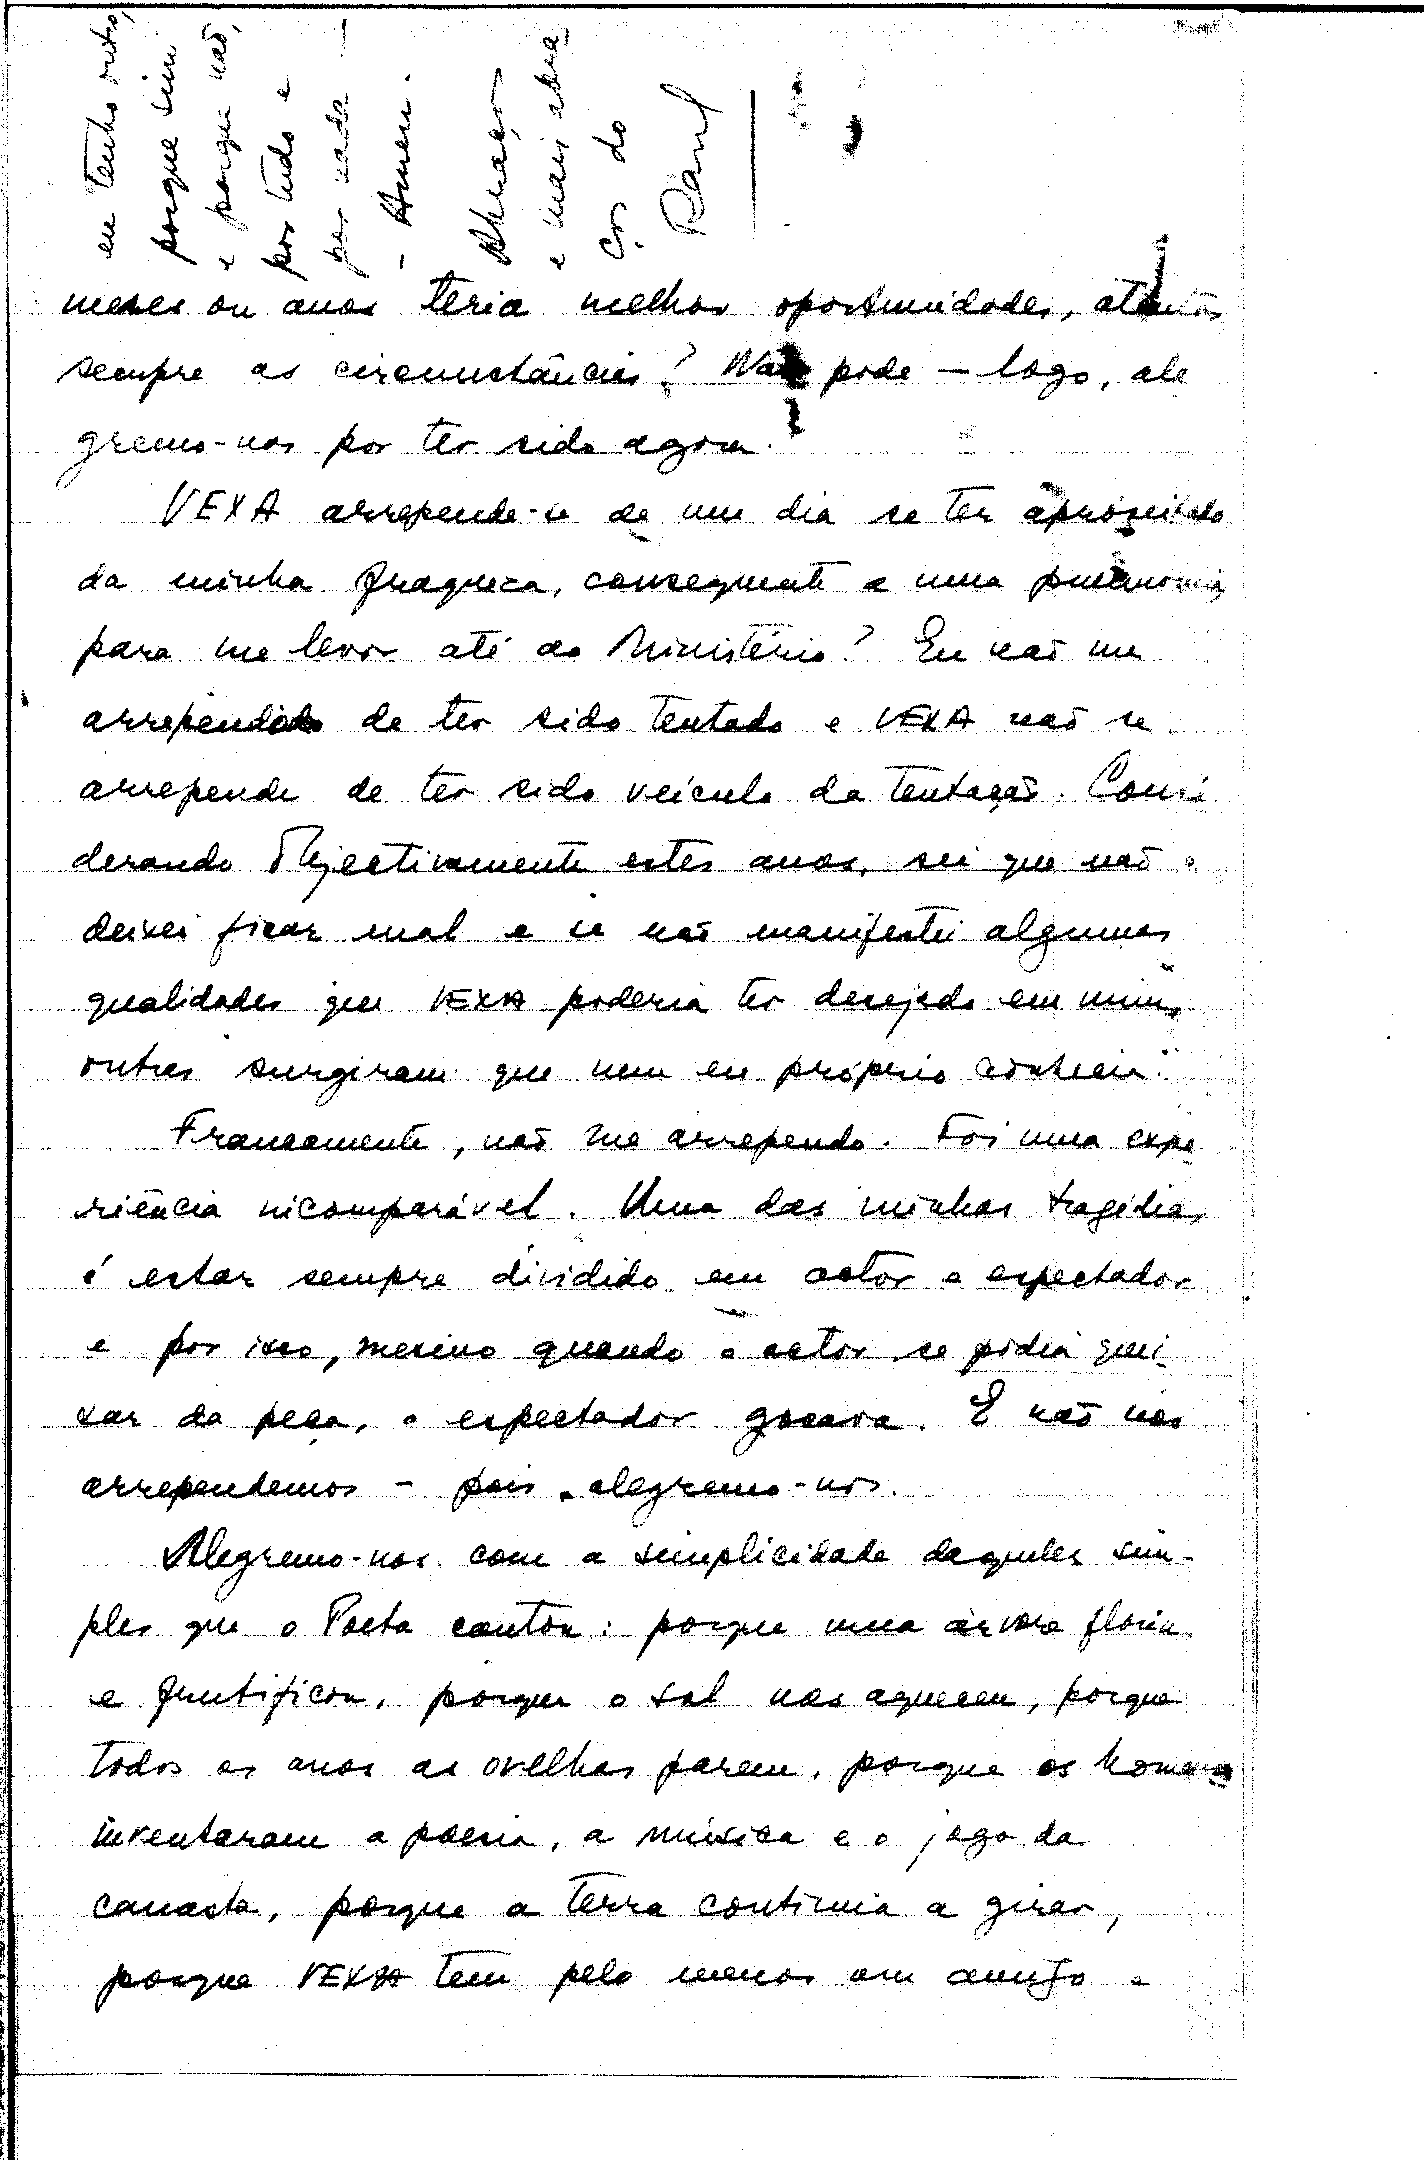 meses ou anos teria melhor oportunidades, atentas
sempre as circunstâncias? Não pode — logo, ale
gremo-nos por ter sido agora.
VEXA arrepende-se de um dia se ter aproveitado
da minha fraqueza, consequente a uma pneumonia,
para me levar até ao Ministério? Eu não me
arrependido de ter sido tentado e VEXA não se
arrepende de ter sido veículo da tentação. Consi
derando objectivamente estes anos, sei que não o
deixei ficar mal e se não manifestei algumas
qualidades que VEXA poderia ter desejado em mim,
outras surgiram que nem eu próprio conhecia.
Francamente, não me arrependo. Foi uma expe
riência incomparável. Uma das minhas tragédias
é estar sempre dividido em actor e espectador
e por isso, mesmo quando o actor se podia quei
xar da peça, o espectador gozava. E não nos
arrependemos - pois alegremo-nos.
Alegremo-nos com a simplicidade daqueles sim-
ples que o Poeta cantou: porque uma árvore floriu
e frutificou, porque o sol nos aqueceu, porque
todos os anos as ovelhas parem, porque os homens
inventaram a poesia, a música e o jogo da
canasta, porque a Terra continua a girar,
porque VEXA tem pelo menos um amigo e
eu tenho outro,
porque sim
e porque não,
por tudo e
por nada —
- Amen.
Abraços
e mais abra
ços do
Raul